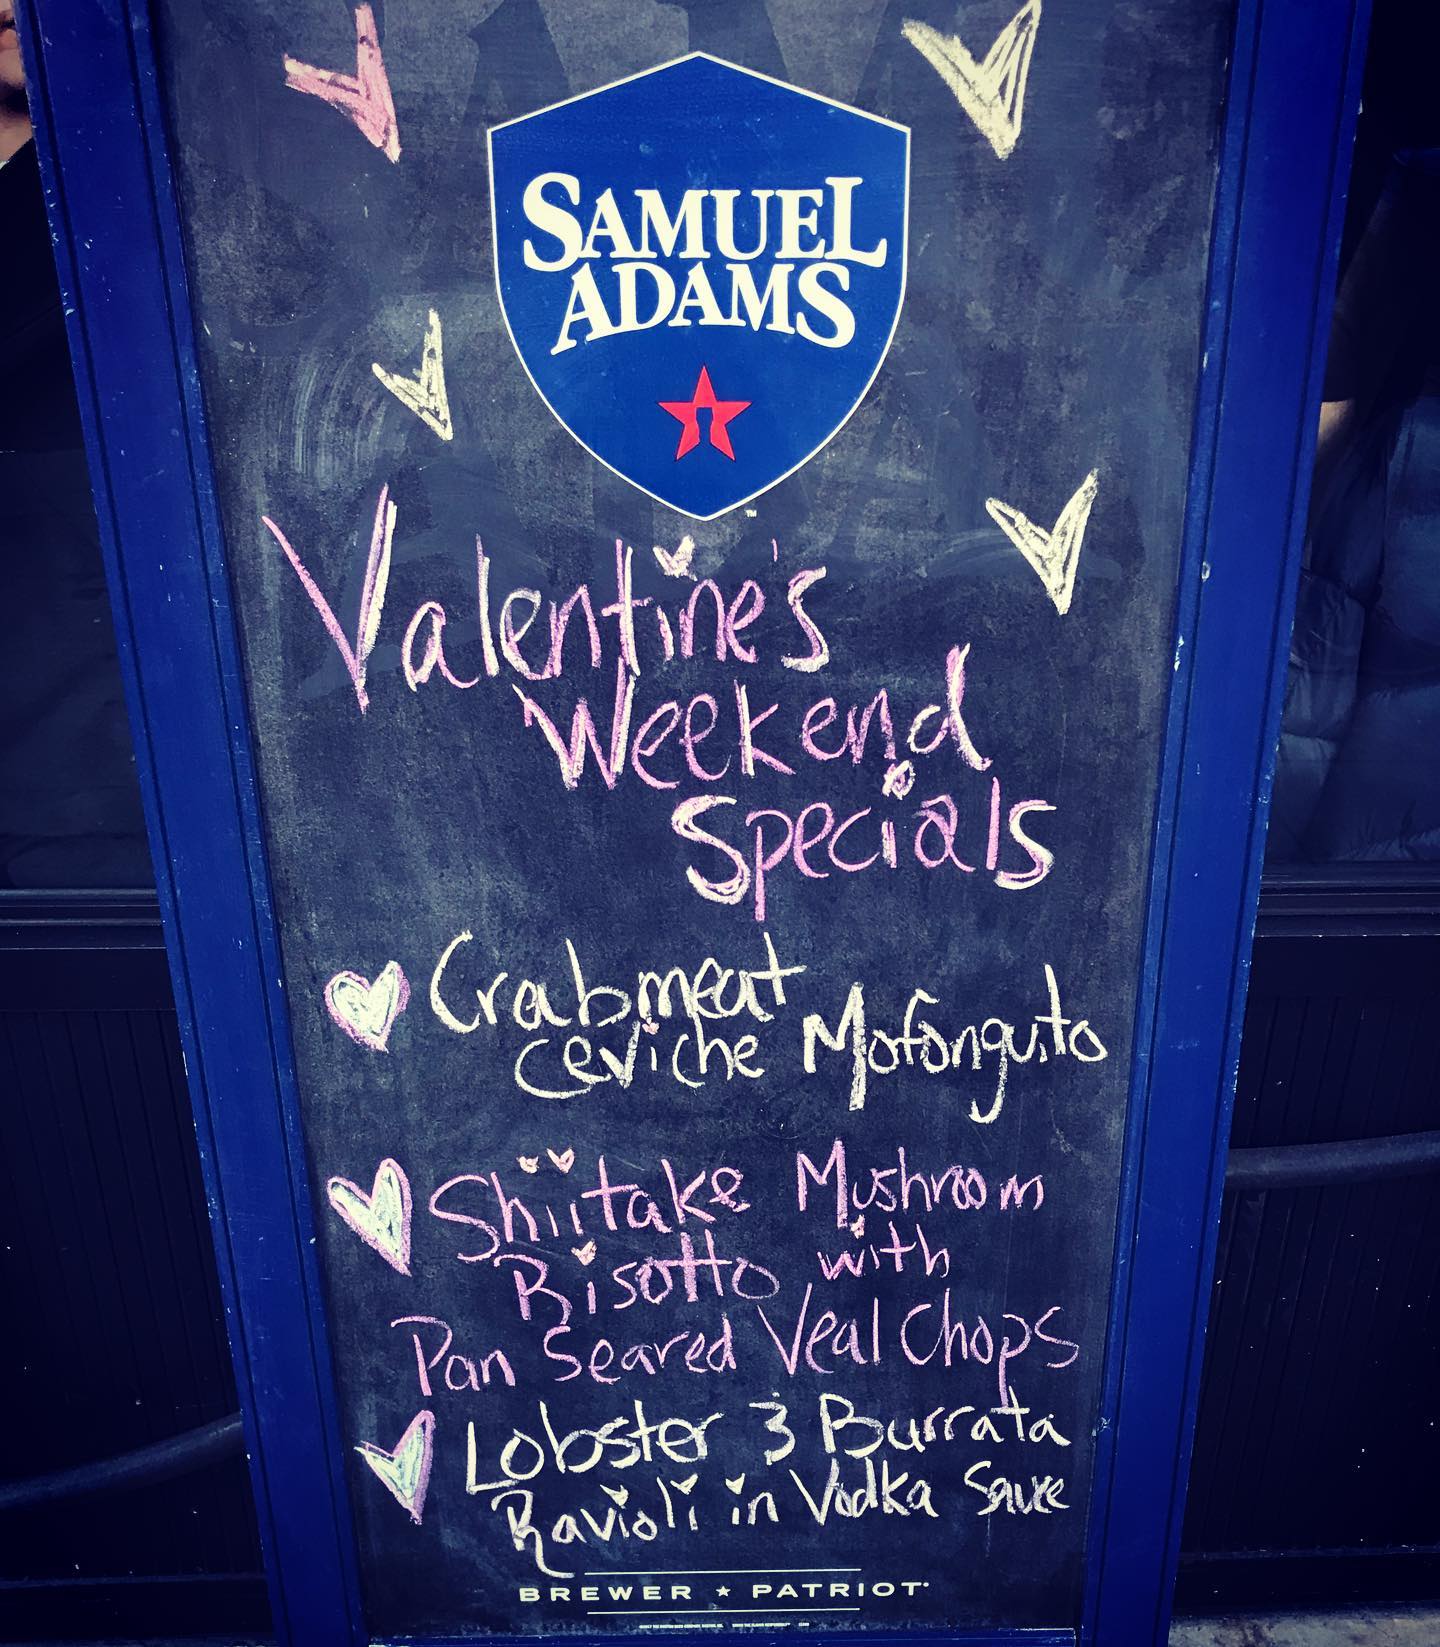 SAMUEL
ADAMS
™
Valentine's
Weekend
Specials
Crabmeat
Ceviche Mofonguito
Shiitake Mushroom
Risotto with
Pan Seared Veal Chops
Lobster & Burrata
Ravioli in Vodka Sauce
BREWER ★ PATRIOT